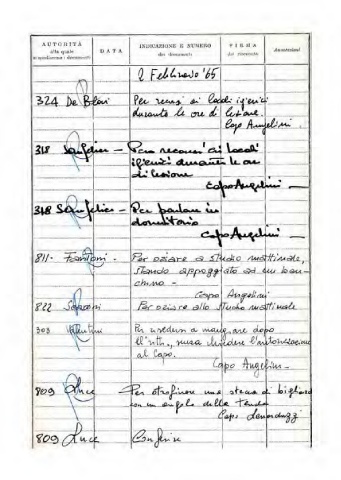 AUTORITÀ
alla quale
si spediscono i documenti
DATA
INDICAZIONE E NUMERO
dei documenti
FIRMA
Annotazioni
2 Febbraio '65
324 De Blasi
Per recarsi ai locali igienici
durante le ore di lezione.
Capo Angelini.
318 Sanfelice - Per recarsi ai locali
igienici durante le ore
di lezione
Capo Angelini —
318 Sanfelice - Per parlare in
dormitorio
Capo Angelini —
811 - Fantoni. - Per oziare a studio mattinale,
stando appoggiato ad un ban-
chino -
Capo Angelini
822 Per oziare allo studio mattinale
303 Valentini Per sedersi a mangiare dopo
senza chiedere l'autorizzazione
al Capo.
Capo Angelini -
809 Luce Per strofinare una stecca di bigliardo
con un angolo della tenda
Capo Lenarduzzi
809 Luce